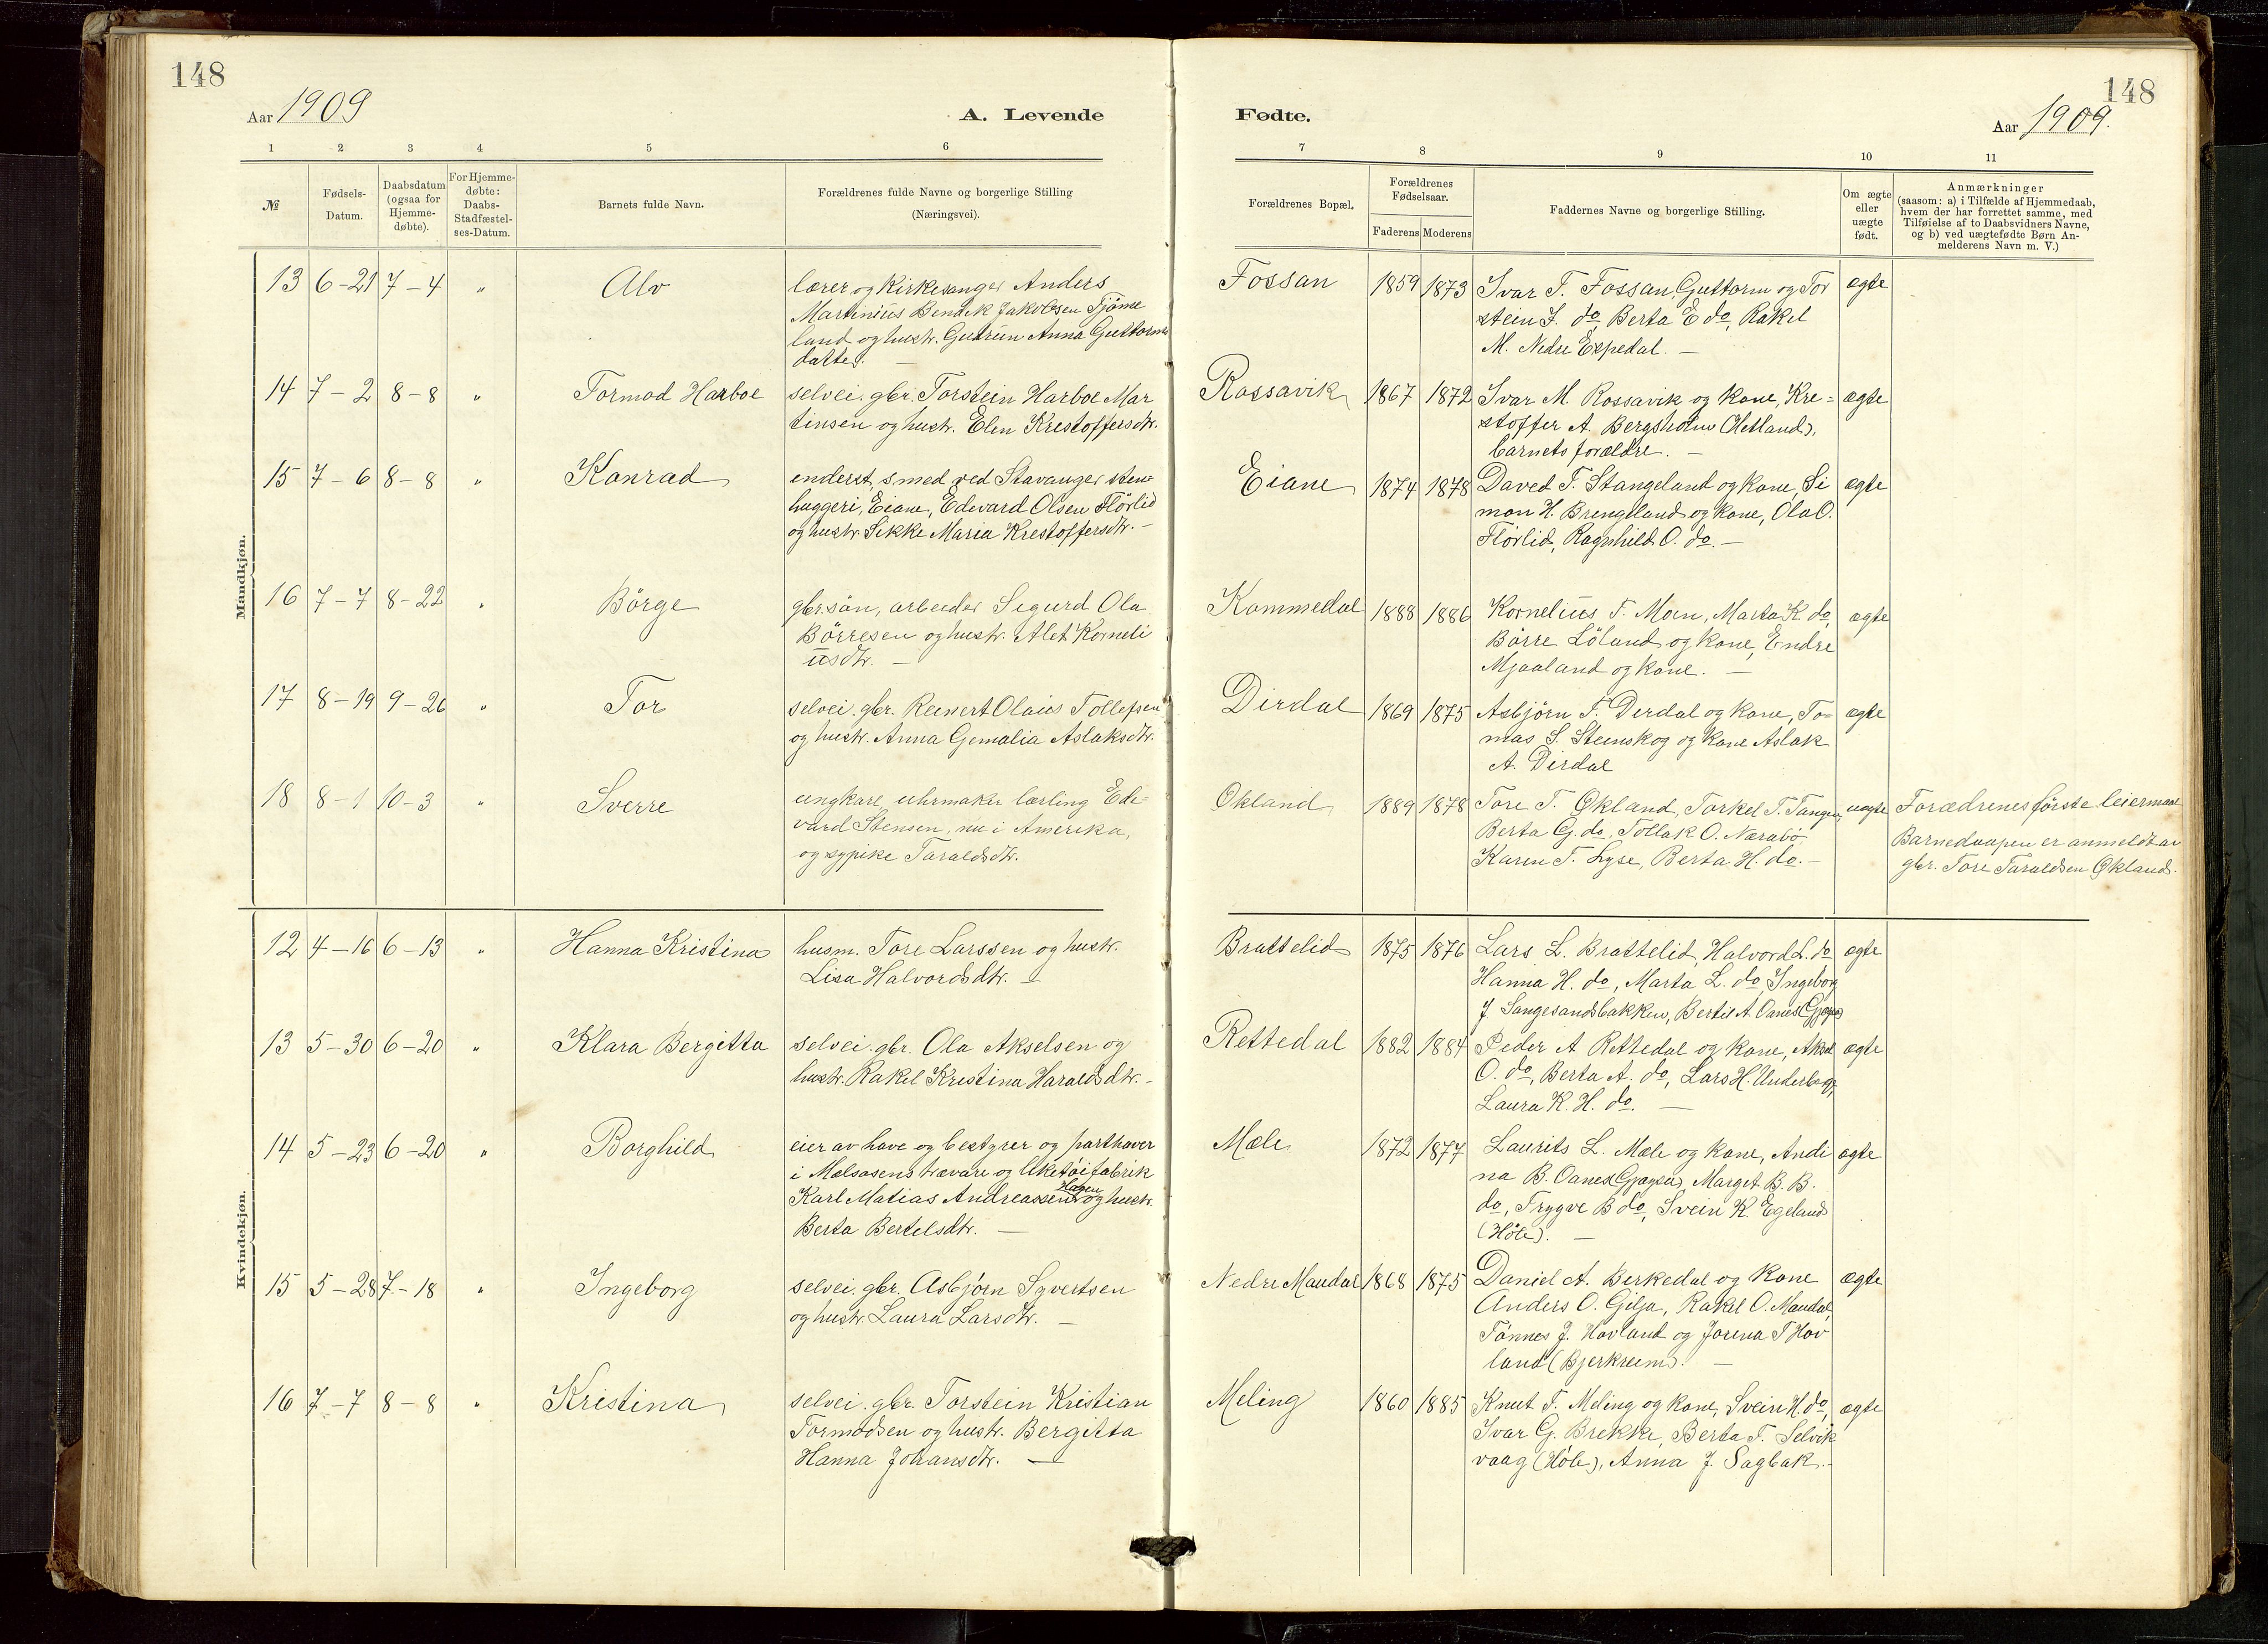 148
148
Aar 1909
A. Levende
Fødte.
Aar 1909.
1 2 3 4 5 6 7 8 9 10 11
№
Fødsels-
Datum.
Daabsdatum
(ogsaa for
Hjemme-
døbte).
For Hjemme-
døbte:
Daabs-
Stadfæstel-
ses-Datum.
Barnets fulde Navn.
Forældrenes fulde Navne og borgerlige Stilling
(Næringsvei).
Forældrenes Bopæl.
Forældrenes
Fødselsaar.
Faderens Moderens
Faddernes Navne og borgerlige Stilling.
Om ægte
eller
uægte
født.
Anmærkninger
(saasom: a) i Tilfælde af Hjemmedaab,
hvem der har forrettet samme, med
Tilføielse af to Daabsvidners Navne,
og b) ved uægtefødte Børn An-
melderens Navn m. V.)
Mandkjøn.
13 6-21 7-4 " Alv
lærer og kirkesanger Anders
Martinius Bendik Jakobsen Tjöme
land og hustr. Gudrun Anna Guttorms
datter. —
Fossan 1859 1873
Ivar T. Fossan, Guttorm og Tor
stein I. do, Berta E do, Rakel
M. Nedre Espedal. —
ægte
14 7-2 8-8 " Tormod Harboe
selvei. gbr. Torstein Harboe Mar
tinsen og hustr. Elen Krestoffersdtr.
Rossavik 1867 1872
Ivar M. Rossavik og kone, Kre=
stoffer A. Bergsholm (Hetland),
barnets forældre. —
ægte
15 7-6 8-8 " Konrad
enderst, smed ved Stavanger sten
huggeri, Eiane, Edevard Olsen Flörlid
og hustr. Sikke Maria Krestoffersdtr. —
Eiane 1874 1878
Daved T. Stangeland og kone, Si
mon H. Brengeland og kone, Ola O.
Flörlid, Ragnhild O. do. —
ægte
16 7-7 8-22 " Börge
gbr.sön, arbeider Sigurd Ola
Börresen og hustr. Alet Korneli
usdtr. —
Kommedal 1888 1886
Kornelius T. Moen, Marta K. do,
Börre Löland og kone, Endre
Mjaaland og kone. —
ægte
17 8-19 9-26 " Tor
selvei. gbr. Reinert Olaus Tollefsen
og hustr. Anna Gemalia Aslaksdtr.
Dirdal 1869 1875
Asbjörn T. Dirdal og kone, To=
mas S. Steinskog og kone Aslak
A. Dirdal
ægte
18 8-1 10-3 " Sverre
ungkarl, uhrmaker lærling Ede=
vard Stensen, nu i Amerika,
og sypike Taraldsdtr.
Økland 1889 1878
Tore T. Økland, Torkel T. Tangen,
Berta G. do, Tollak O. Nærabö,
Karen T. Lyse, Berta H. do. —
uægte
Forædrenes förste leiermaal
Barnedaapen er anmeldt av
gbr. Tore Taraldsen Økland.
Kvindekjøn.
12 4-16 6-13 " Hanna Kristina
husm. Tore Larssen og hustr.
Lisa Halvordsdtr. —
Brattelid 1875 1876
Lars L. Brattelid, Halvord L. do
Hanna H. do, Marta L. do, Ingeborg
J. Sangesandsbakken, Bertil A. Oanes (Gjøse)
ægte
13 5-30 6-20 " Klara Bergitta
selvei. gbr. Ola Akselsen og
hustr. Rakel Kristina Haraldsdtr. —
Rettedal 1882 1884
Peder A Rettedal og kone, Aksel
O. do, Berta A. do, Lars H. Underberge,
Laura K. H. do. —
ægte
14 5-23 6-20 " Borghild
eier av have og bestyrer og parthaver
i Mælsosens trævare og Aketöifabrik
Karl Matias Andreassen Hagen og hustr.
Berta Bertelsdtr. —
Mæle 1872 1877
Laurits L. Mæle og kone, Andi
na B. Oanes, Marget B. B.
do, Trygve B do, Svein K. Egeland
(Höle). —
ægte
15 5-28 7-18 " Ingeborg
selvei. gbr. Asbjörn Syvertsen
og hustr. Laura Larsdtr. —
Nedre Maudal 1868 1875
Daniel A. Berkedal og kone
Anders O. Gilja, Rakel O. Maudal,
Tönnes J. Hovland og Jorina T Hov
land (Bjerkreim). —
ægte
16 7-7 8-8 " Kristina
selvei. gbr. Torstein Kristian
Tormodsen og hustr. Bergitta
Hanna Johansdtr. —
Meling 1860 1885
Knut T. Meling og kone, Svein H. do,
Ivar G. Brekke, Berta T. Selvik
vaag (Höle), Anna J. Sagbak. —
ægte